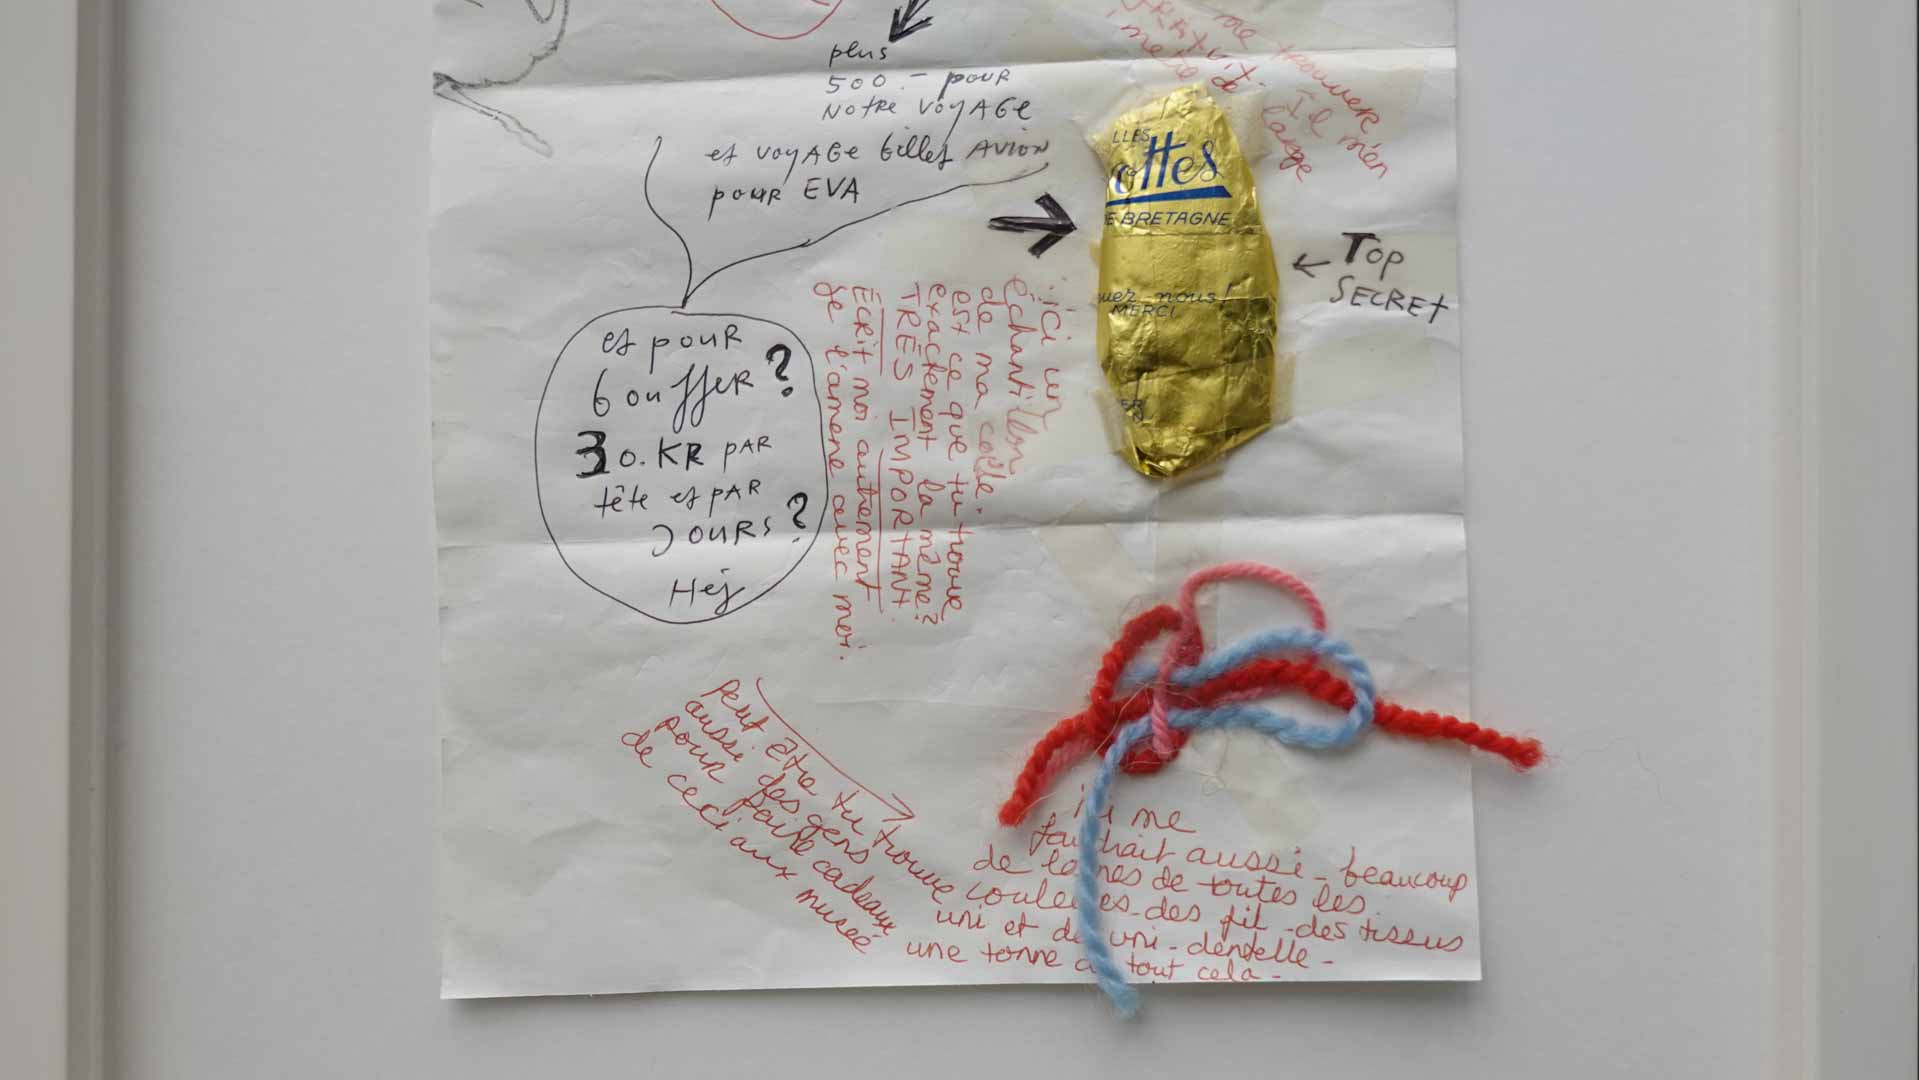 plus
500.- pour
NOTRE VOYAGE
et VOYAGE billet AVION
pour EVA
me trouver
TRAVAUX. Il m'en
large
LLES
ottes
E BRETAGNE
uer nous!
MERCI
ER
TOP
SECRET
et pour
bouffer?
30.KR PAR
tête et PAR
JOURS?
Hej
ici un
échantillon
de ma colle.
est ce que tu trouve
exactement la même?
TRÈS IMPORTANT.
ÉCRIT moi autrement
je l'amène avec moi.
peut être tu trouve
aussi des gens
pour faire cadeaux
de ceci aux musée
me
faudrait aussi - beaucoup
de laines de toutes les
couleures - des fil - des tissus
uni et de uni - dentelle -
une tonne de tout cela -